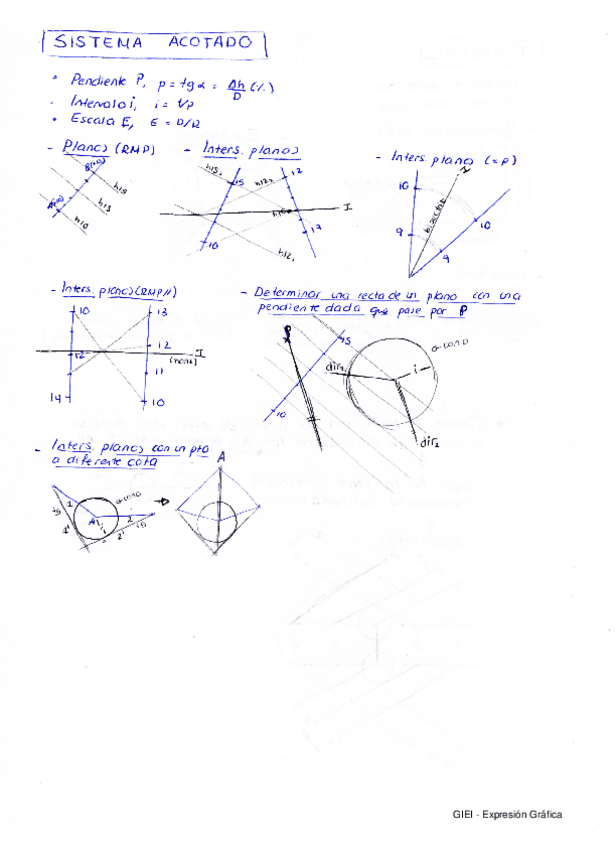 SISTEMA ACOTADO
• Pendiente P, p = tg α = Δh/D (%)
• Intervalo i, i = 1/p
• Escala E, E = D/R
- Planos (RMP) - Inters. planos - Inters. planos (= p)
B(15)
A(10)
h15
h13
h10
h15₁
15
h12₂
12
I
17
10
h12₁
10
9
bisectriz
10
9
- Inters. planos (RMP//) - Determinar una recta de un plano con una
pendiente dada que pase por P
10
13
12
12
I
(horiz)
11
14
10
P
15
dir₁
i
10
dir₂
- Inters. planos con un pto
a diferente cota
A
1
A
2
1'
2'